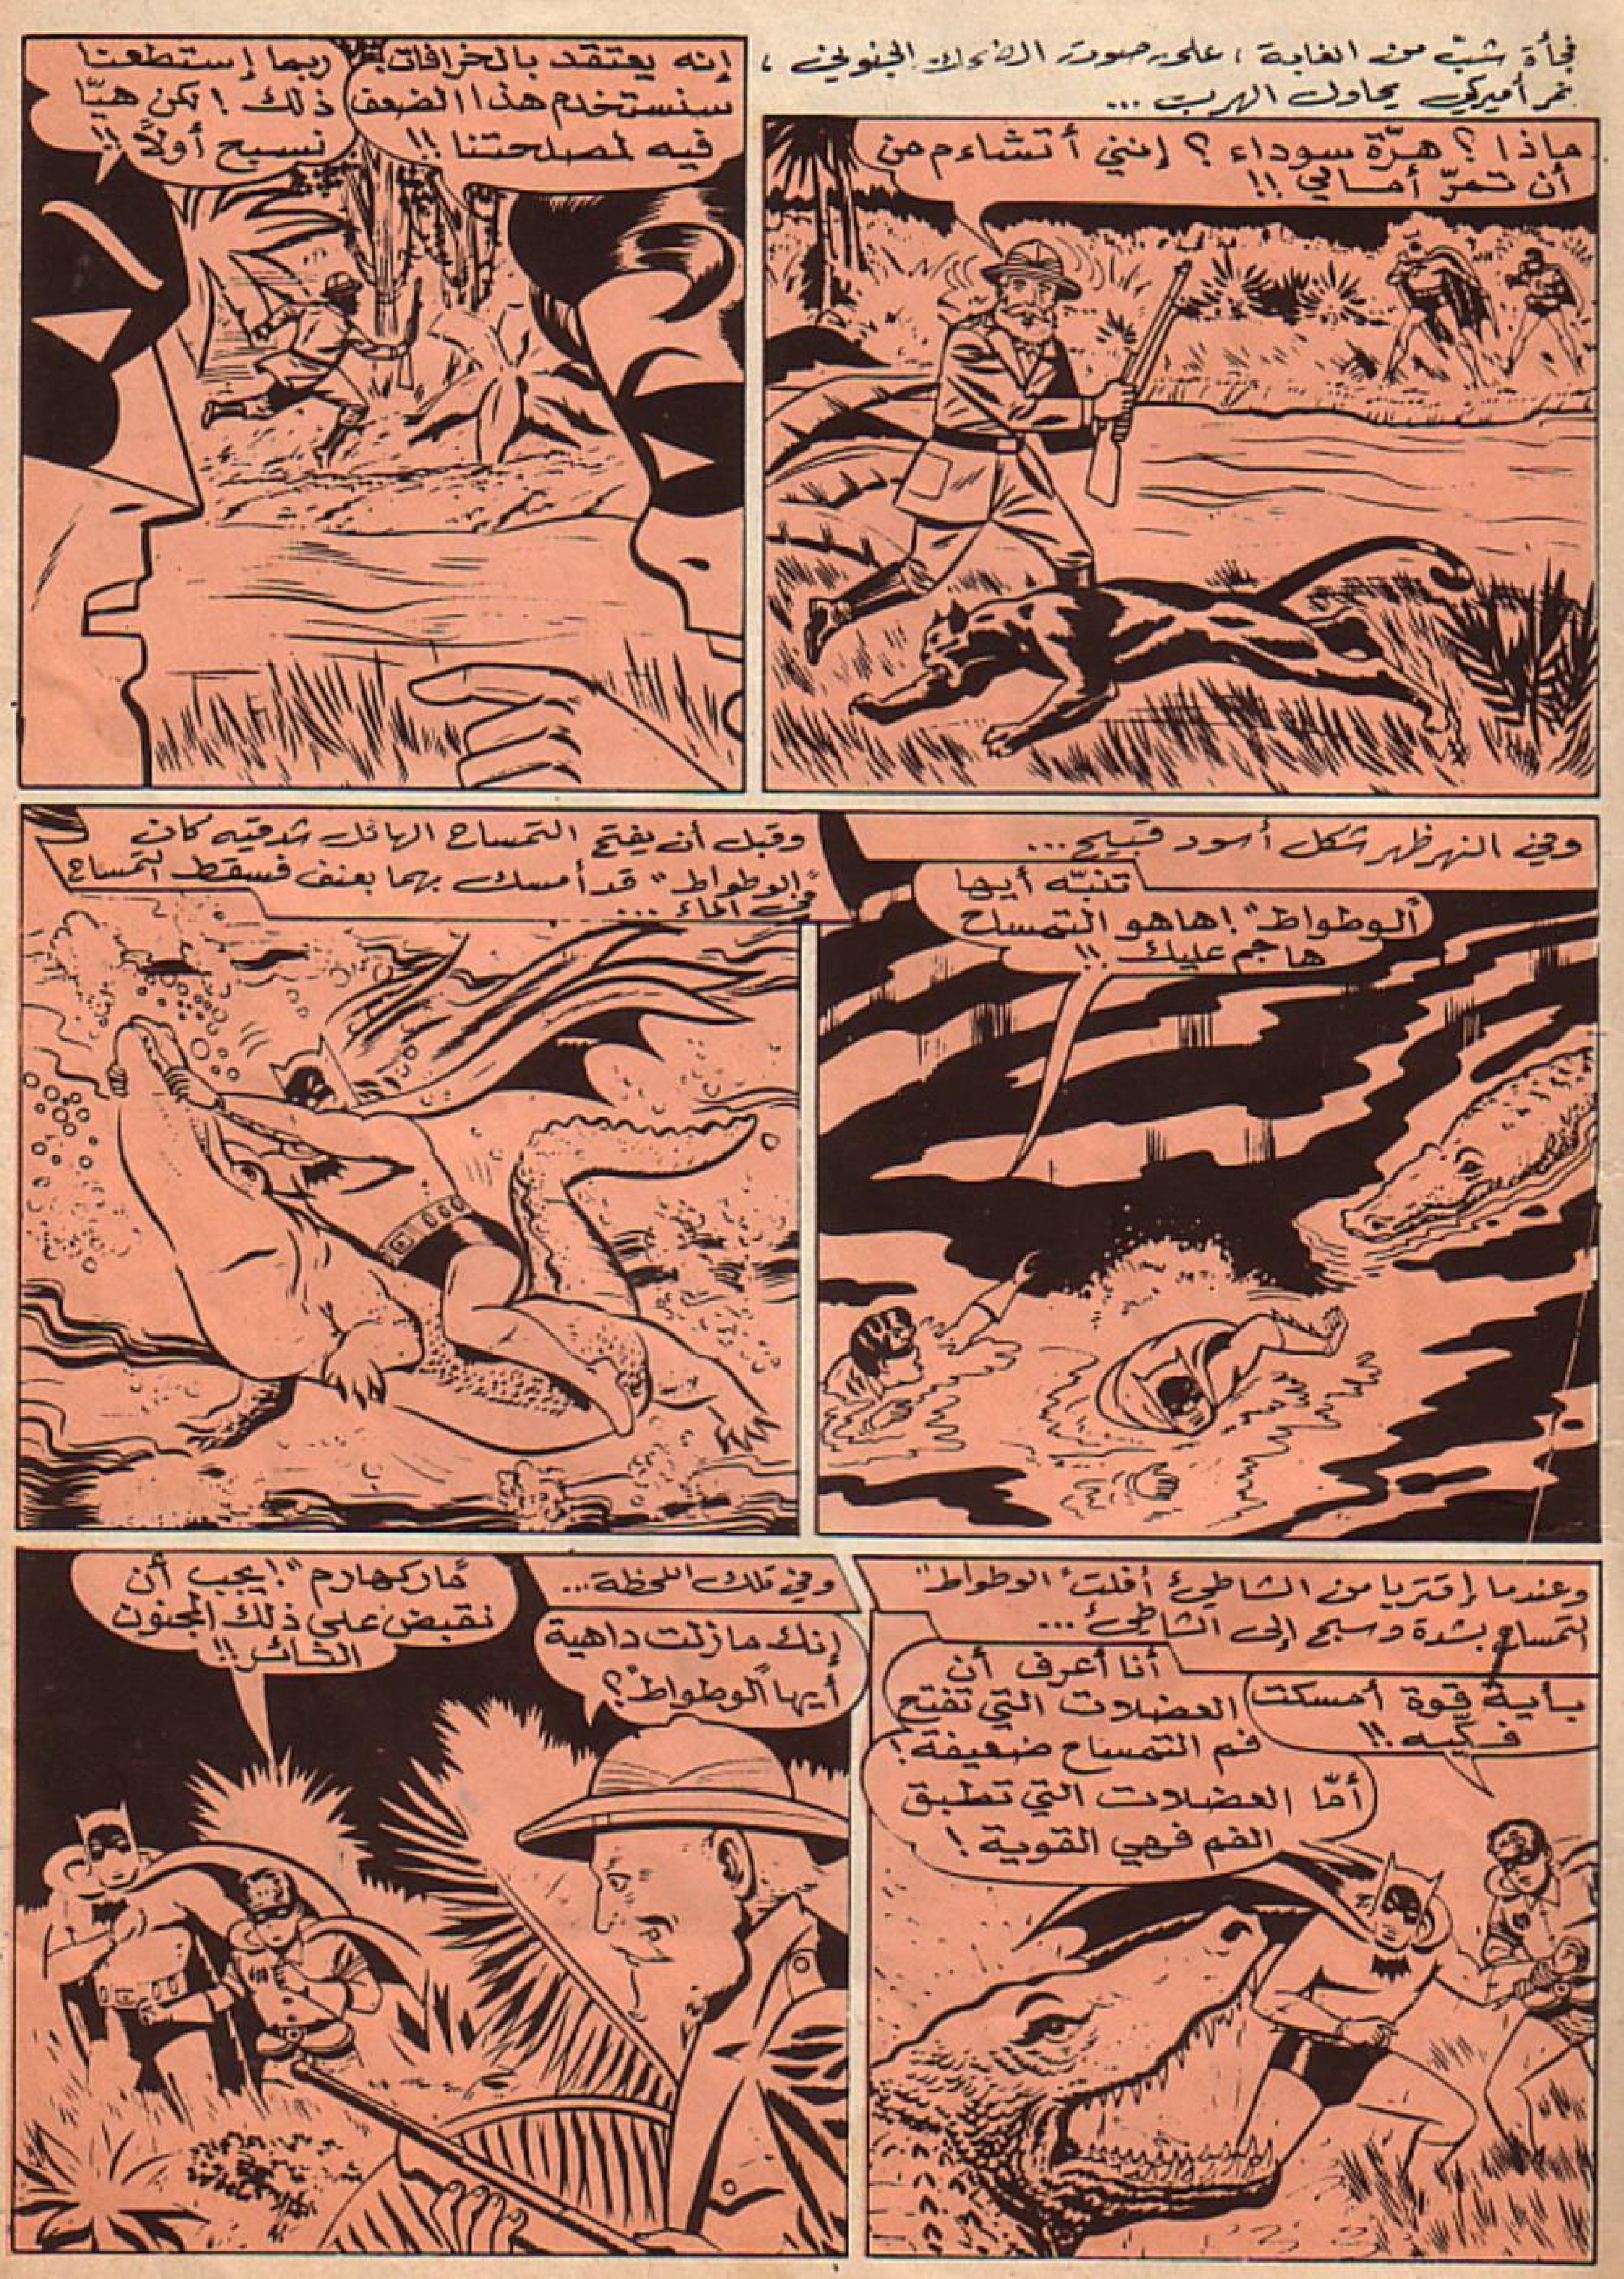 فجأة شبّ من الغابة ، على صوت الضحك الجنوني ،
نمر أميركي يحاول الهرب ...
ماذا ؟ هرّة سوداء ؟ إنني أتشاءم من
أن تمرّ أمامي !!
إنه يعتقد بالخرافات !
سنستخدم هذا الضعف
فيه لمصلحتنا !!
ربما إستطعنا
ذلك ! لكن هيّا
نسبح أولاً !!
وفي النهر ظهر شكل أسود قبيح ...
تنبّه أيها
"الوطواط" ! هاهو التمساح
هاجم عليك !!
وقبل أن يفتح التمساح الهائل شدقيه كان
"الوطواط" قد أمسك بهما بعنف فسقط التمساح
في الماء ...
وعندما إقتربا من الشاطئ أفلت "الوطواط"
التمساح بشدة وسبح إلى الشاطئ ...
بأية قوة أمسكت
فكّيه !!
أنا أعرف أن
العضلات التي تفتح
فم التمساح ضعيفة !
أمّا العضلات التي تطبق
الفم فهي القوية !
وفي تلك اللحظة ...
إنك مازلت داهية
أيها "الوطواط" ؟
"ماركهارم" ! يجب أن
نقبض على ذلك المجنون
الثائر !!